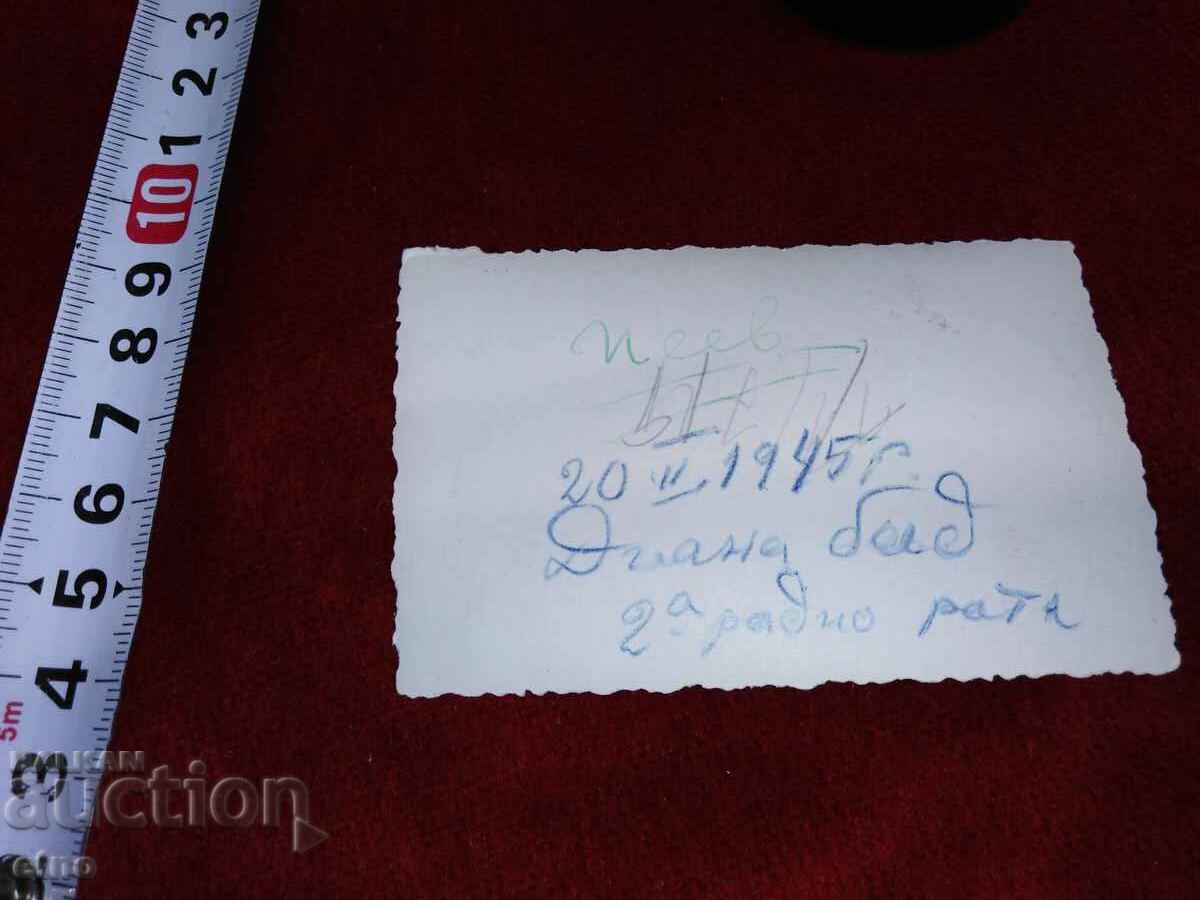 3
2
1
10
9
8
7
6
5
4
5m
3
Пеев
20 II. 1945 г.
Диана бад
2а радно рота
BALKAN
auction
etno